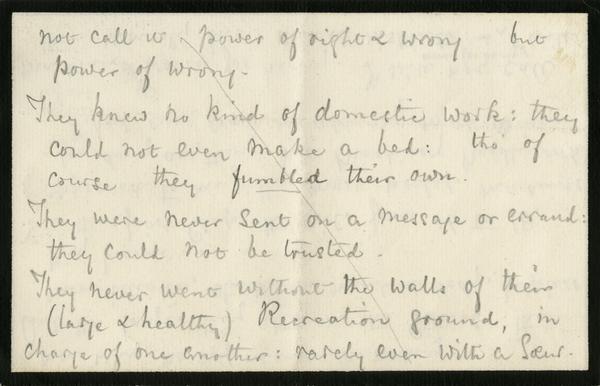 not call it power of right & wrong but
power of wrong.
They knew no kind of domestic work: they
could not even make a bed: tho' of
course they fumbled their own.
They were never sent on a message or errand:
they could not be trusted.
They never went without the walls of their
(large & healthy) Recreation ground, in
charge of one another: rarely even with a Sœur.